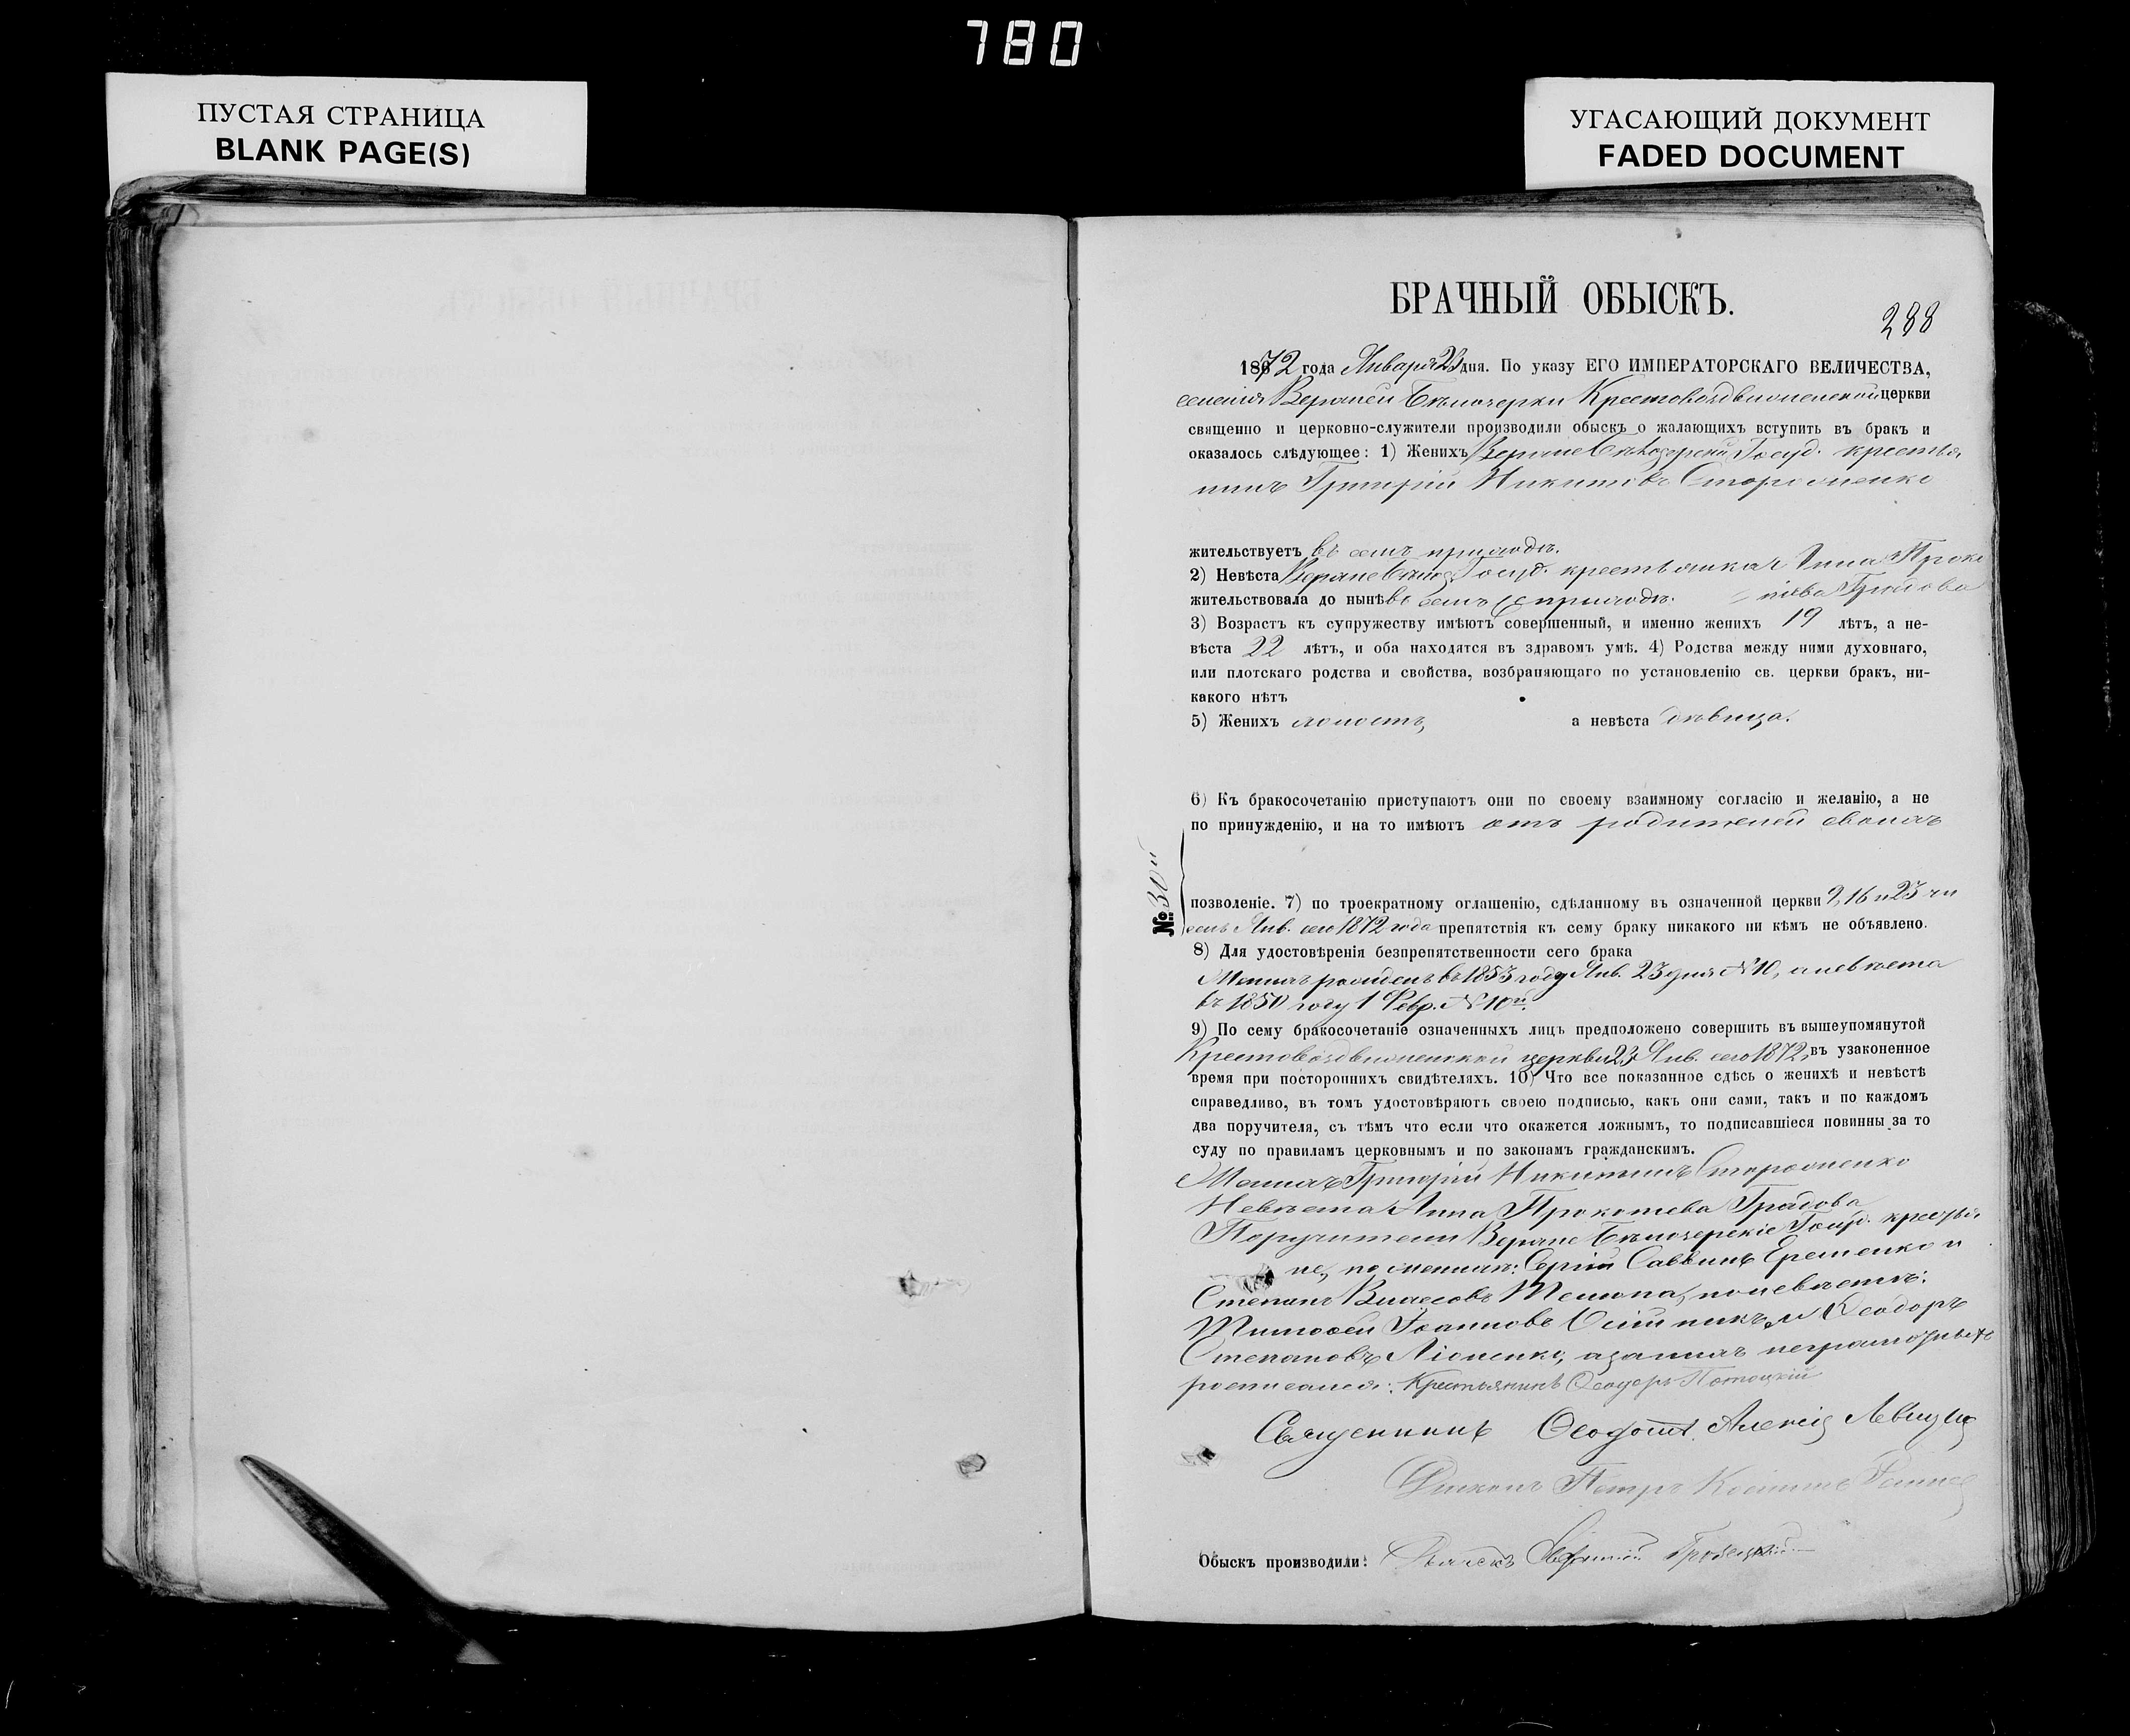 780
ПУСТАЯ СТРАНИЦА
BLANK PAGE(S)
УГАСАЮЩИЙ ДОКУМЕНТ
FADED DOCUMENT
БРАЧНЫЙ ОБЫСКЪ.
288
1872 года Января 23 дня. По указу ЕГО ИМПЕРАТОРСКАГО ВЕЛИЧЕСТВА,
селенія Верхней Бѣлозерки Крестовоздвиженской церкви
священно и церковно-служители производили обыскъ о жалающихъ вступить въ бракъ и
оказалось слѣдующее: 1) Женихъ Верхне Бѣлозерскій Госуд. крестья
нинъ Григорій Никитовъ Стороженко
жительствуетъ въ семъ приходѣ.
2) Невѣста Верхне Госуд. крестьянка Анна Проко
жительствовала до нынѣ въ семъ приходѣ. піева
3) Возрастъ къ супружеству имѣютъ совершенный, и именно женихъ 19 лѣтъ, а не-
вѣста 22 лѣтъ, и оба находятся въ здравомъ умѣ. 4) Родства между ними духовнаго,
или плотскаго родства и свойства, возбраняющаго по установленію св. церкви бракъ, ни-
какого нѣтъ
5) Женихъ холостъ, а невѣста дѣвица.
6) Къ бракосочетанію приступаютъ они по своему взаимному согласію и желанію, а не
по принужденію, и на то имѣютъ отъ родителей своихъ
№ 30й
позволеніе. 7) по троекратному оглашенію, сдѣланному въ означенной церкви 9, 16 и 23 чи
селъ Янв. сего 1872 года препятствія къ сему браку никакого ни кѣмъ не объявлено.
8) Для удостовѣренія безпрепятственности сего брака
Женихъ рожденъ въ 1853 году Янв. 23 дня №10, а невѣста
въ 1850 году 1 Февр. №10й.
9) По сему бракосочетаніе означенныхъ лицъ предположено совершить въ вышеупомянутой
Крестовоздвиженской церкви 23 Янв. сего 1872, въ узаконенное
время при посторонихъ свидѣтеляхъ. 10) Что все показанное сдѣсь о женихѣ и невѣстѣ
справедливо, въ томъ удостовѣряютъ своею подписью, какъ они сами, такъ и по каждомъ
два поручителя, съ тѣмъ что если что окажется ложнымъ, то подписавшіеся повинны за то
суду по правиламъ церковнымъ и по законамъ гражданскимъ.
Женихъ Григорій Никитинъ Стороженко
Невѣста Анна Прокопіева
Поручители Верхне Бѣлозерскіе Госуд. крестья
не, по женихѣ: Сергій Саввинъ Еременко и
Степанъ Власовъ по невѣстѣ:
Тимофей Іоанновъ и Феодоръ
Степановъ а за нихъ неграмотныхъ
росписался: Крестьянинъ Феодоръ Потоцкій
Священникъ Феодотъ Алексій
Діаконъ Петръ
Обыскъ производили: Дьячекъ